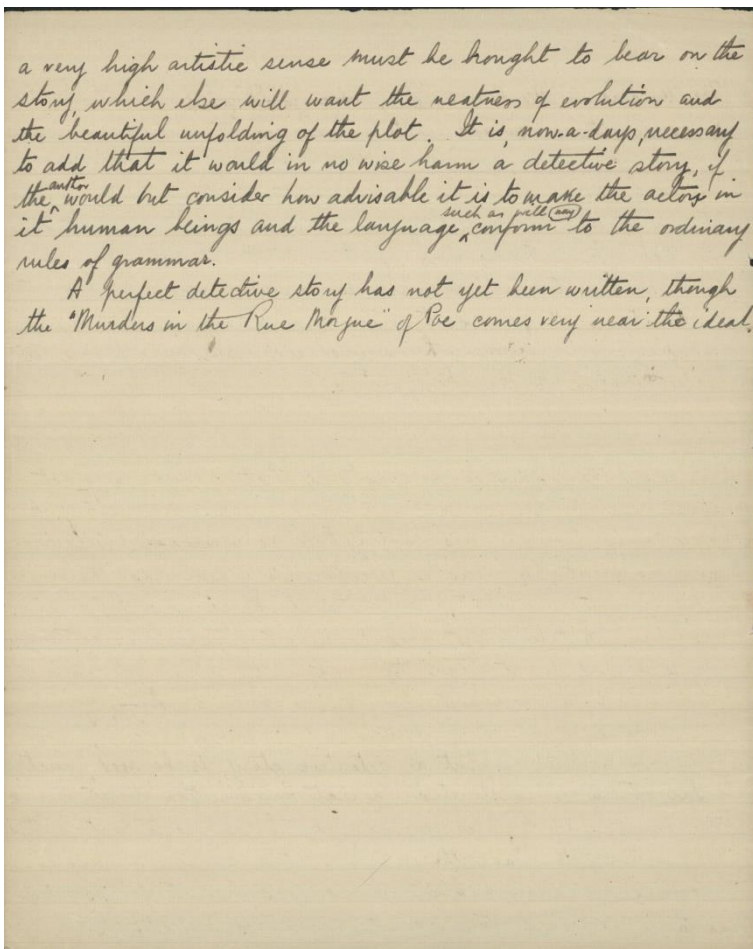 a very high artistic sense must be brought to bear on the
story, which else will want the neatness of evolution and
the beautiful unfolding of the plot. It is, now-a-days, necessary
to add that it would in no wise harm a detective story, if
the author would but consider how advisable it is to make the actors in
it human beings and the language, such as will (may) conform to the ordinary
rules of grammar.
A perfect detective story has not yet been written, though
the "Murders in the Rue Morgue" of Poe comes very near the ideal.